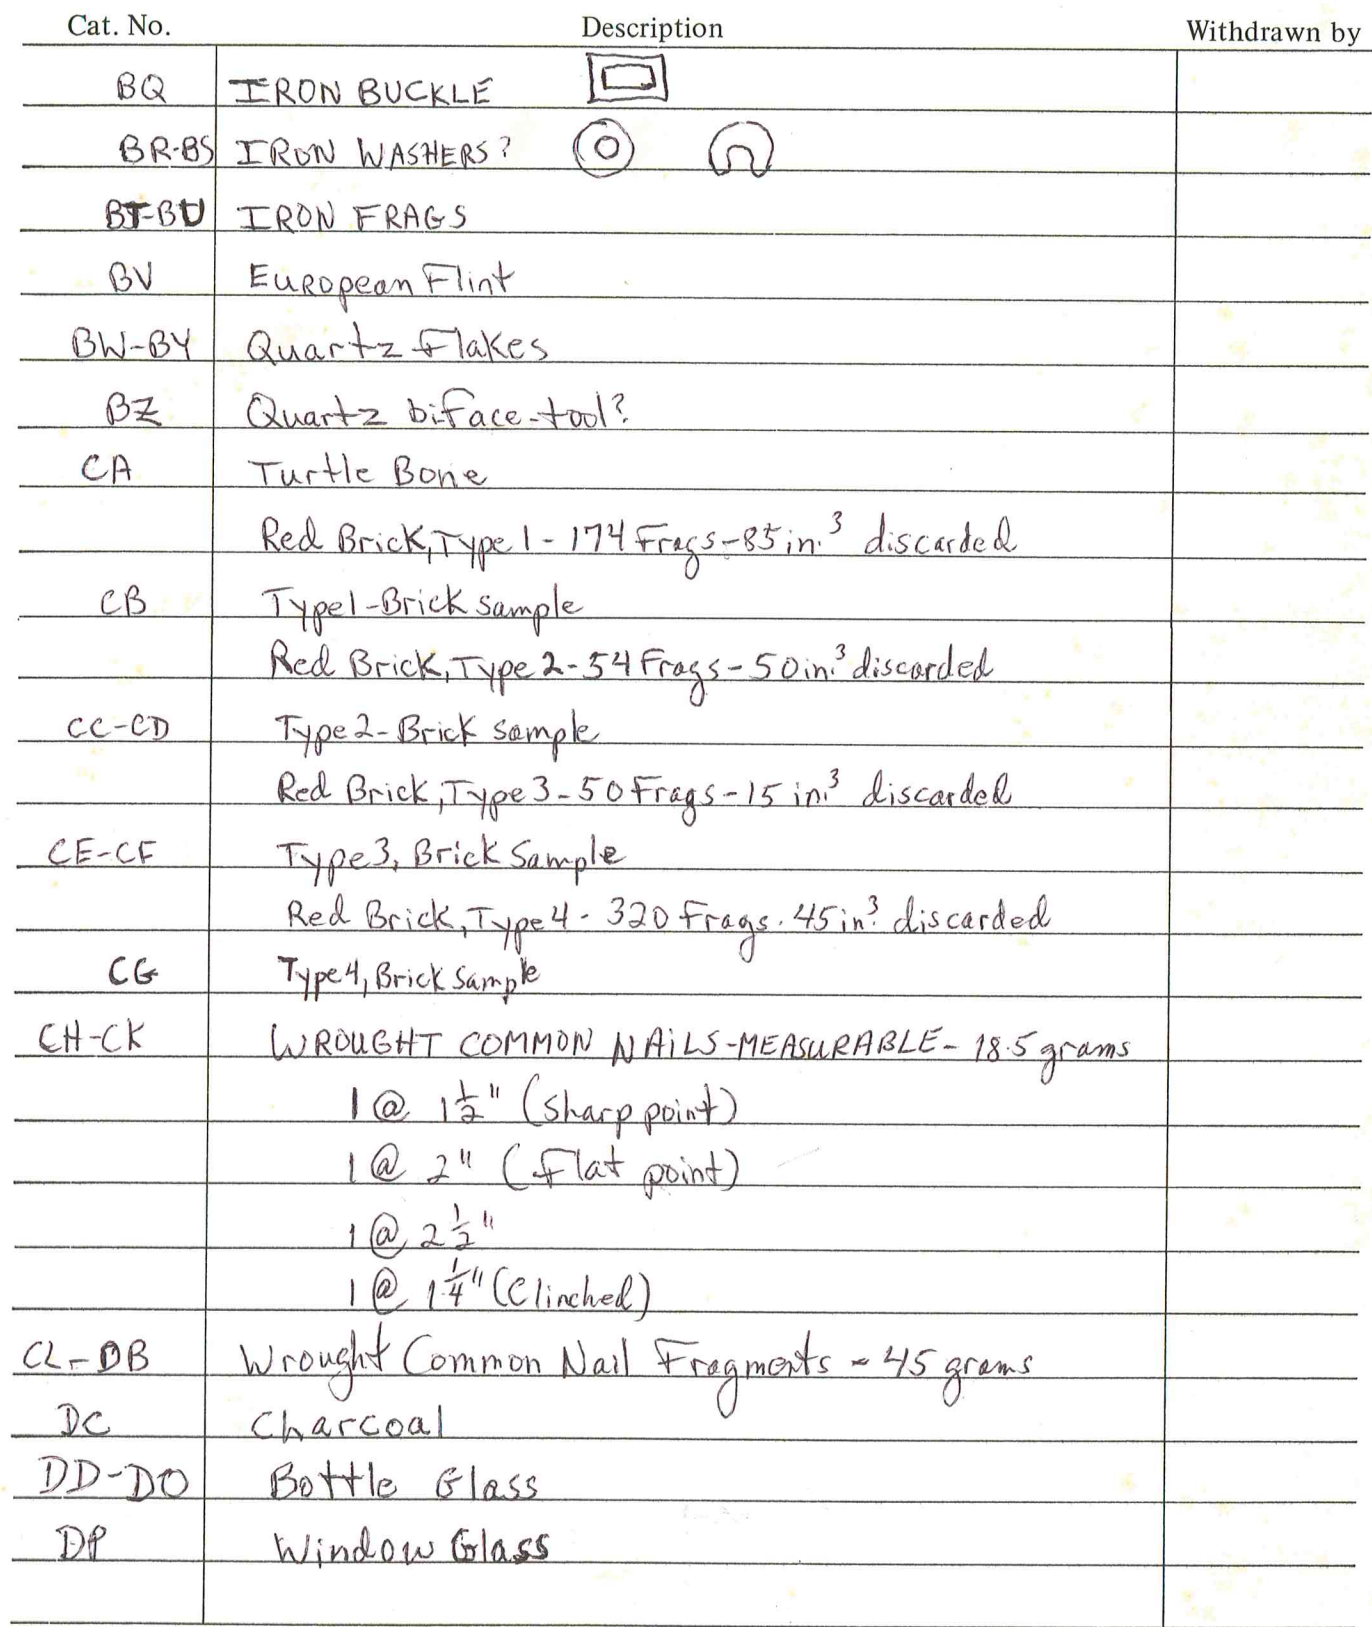 Cat. No. Description Withdrawn by
BQ IRON BUCKLE
BR-BS IRON WASHERS?
BT-BU IRON FRAGS
BV European Flint
BW-BY Quartz Flakes
BZ Quartz biface-tool?
CA Turtle Bone
Red Brick, Type 1 - 174 Frags - 85 in.³ discarded
CB Type 1 - Brick sample
Red Brick, Type 2 - 54 Frags - 50 in.³ discarded
CC-CD Type 2 - Brick sample
Red Brick, Type 3 - 50 Frags - 15 in.³ discarded
CE-CF Type 3, Brick Sample
Red Brick, Type 4 - 320 Frags. 45 in.³ discarded
CG Type 4, Brick Sample
CH-CK WROUGHT COMMON NAILS-MEASURABLE - 18.5 grams
1 @ 1½" (sharp point)
1 @ 2" (flat point)
1 @ 2½"
1 @ 1¼" (Clinched)
CL-DB Wrought Common Nail Fragments - 45 grams
DC Charcoal
DD-DO Bottle Glass
DP Window Glass